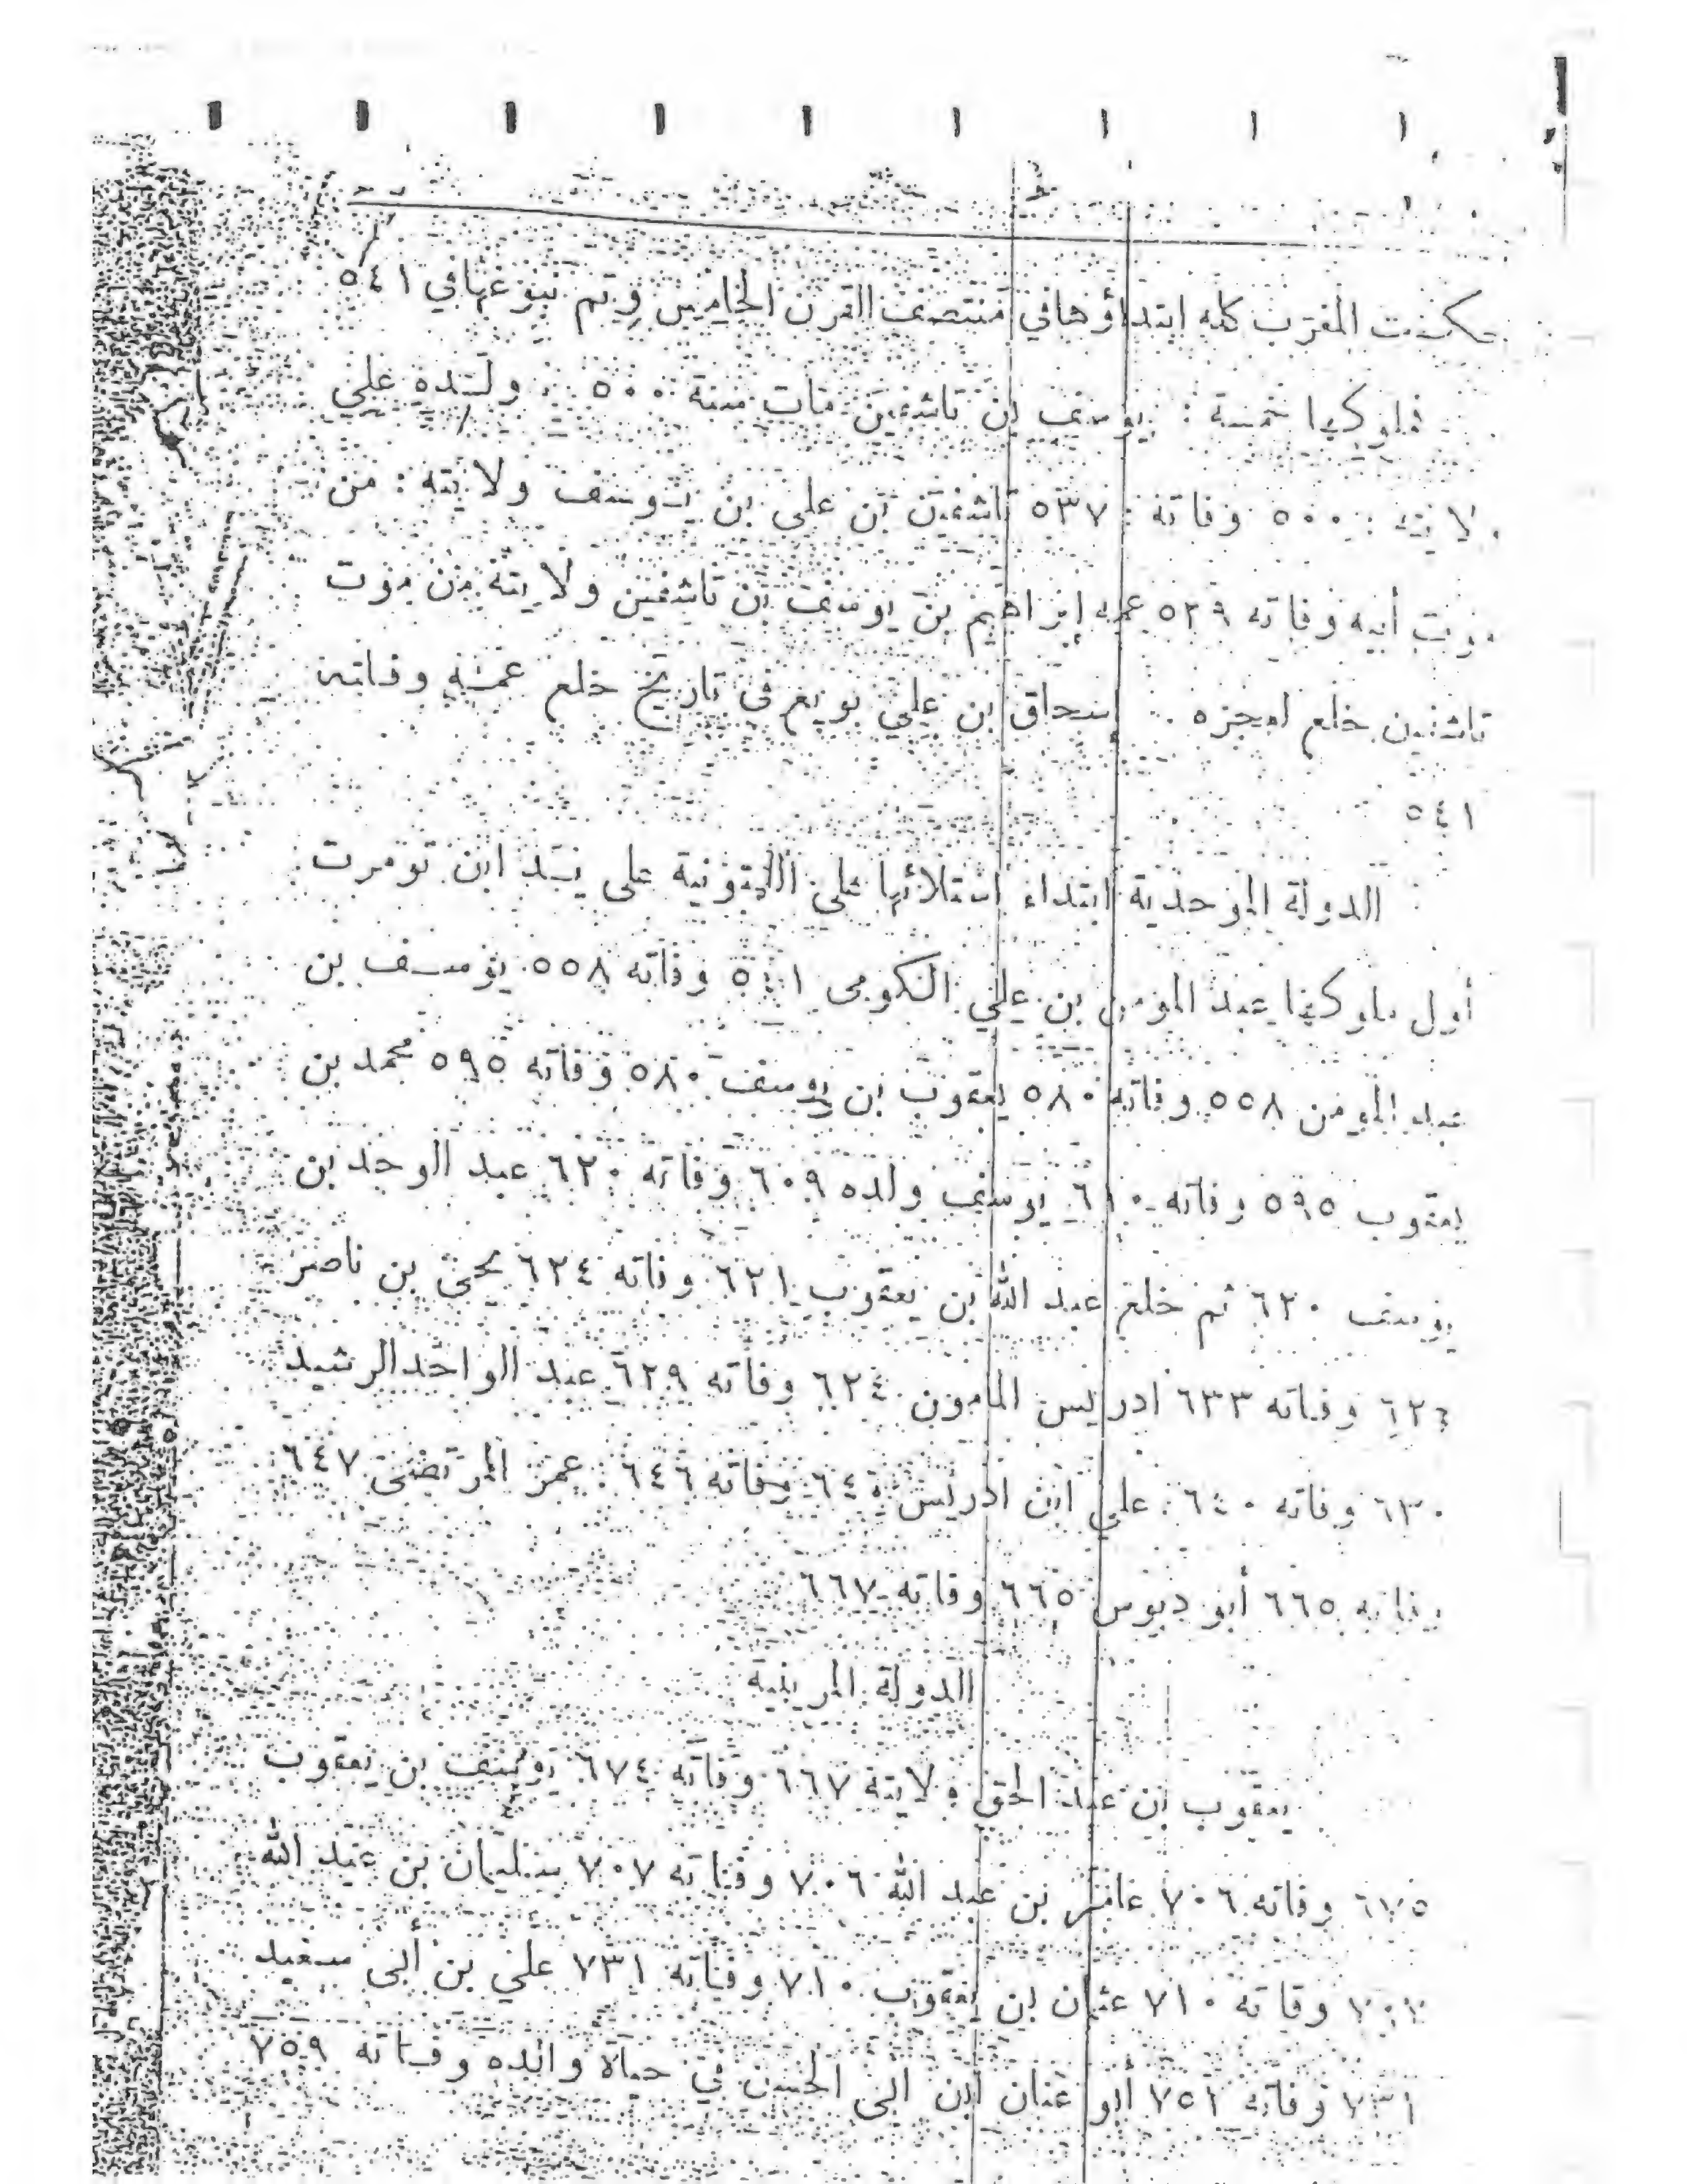 حكمت المغرب كله ابتداؤها في منتصف القرن الخامس وتم نبوغها في ٥٤١
فلوكها خمسة : يوسف بن تاشفين مات سنة ٥٠٠ . ولده علي
ولايته : ٥٠٠ وفاته : ٥٣٧ تاشفين بن علي بن يوسف ولايته : من
موت أبيه وفاته ٥٣٩ عمه إبراهيم بن يوسف بن تاشفين ولايته من موت
تاشفين خلع لعجزه . إسحاق بن علي بويع في تاريخ خلع عمه وفاته
٥٤١
الدولة الموحدية ابتداء استلائها على اللمتونية على يد ابن تومرت
أول ملوكها عبد المومن بن علي الكومي ٥٤١ وفاته ٥٥٨ يوسف بن
عبد المومن ٥٥٨ وفاته ٥٨٠ يعقوب بن يوسف ٥٨٠ وفاته ٥٩٥ محمد بن
يعقوب ٥٩٥ وفاته ٦١٠ يوسف ولده ٦٠٩ وفاته ٦٢٠ عبد الوحد بن
يوسف ٦٢٠ ثم خلع عبد الله بن يعقوب ٦٢١ وفاته ٦٢٤ يحيى بن ناصر
وفاته ٦٣٣ ادريس المامون ٦٢٤ وفاته ٦٢٩ عبد الواحد الرشيد
٦٣٠ وفاته ٦٤٠ علي ابن ادريس ٦٤٠ وفاته ٦٤٦ عمر المرتضى ٦٤٧
وفاته ٦٦٥ أبو دبوس ٦٦٥ وفاته ٦٦٧
الدولة المرينية
يعقوب بن عبد الحق ولايته ٦٦٧ وفاته ٦٧٤ يوسف بن يعقوب
٦٧٥ وفاته ٧٠٦ عامر بن عبد الله ٧٠٦ وفاته ٧٠٧ سليمان بن عبد الله
٧٠٧ وفاته ٧١٠ عثمان بن يعقوب ٧١٠ وفاته ٧٣١ علي بن أبي سعيد
٧٣١ وفاته ٧٥٢ أبو عنان ابن ابي الحسن في حياة والده وفاته ٧٥٩